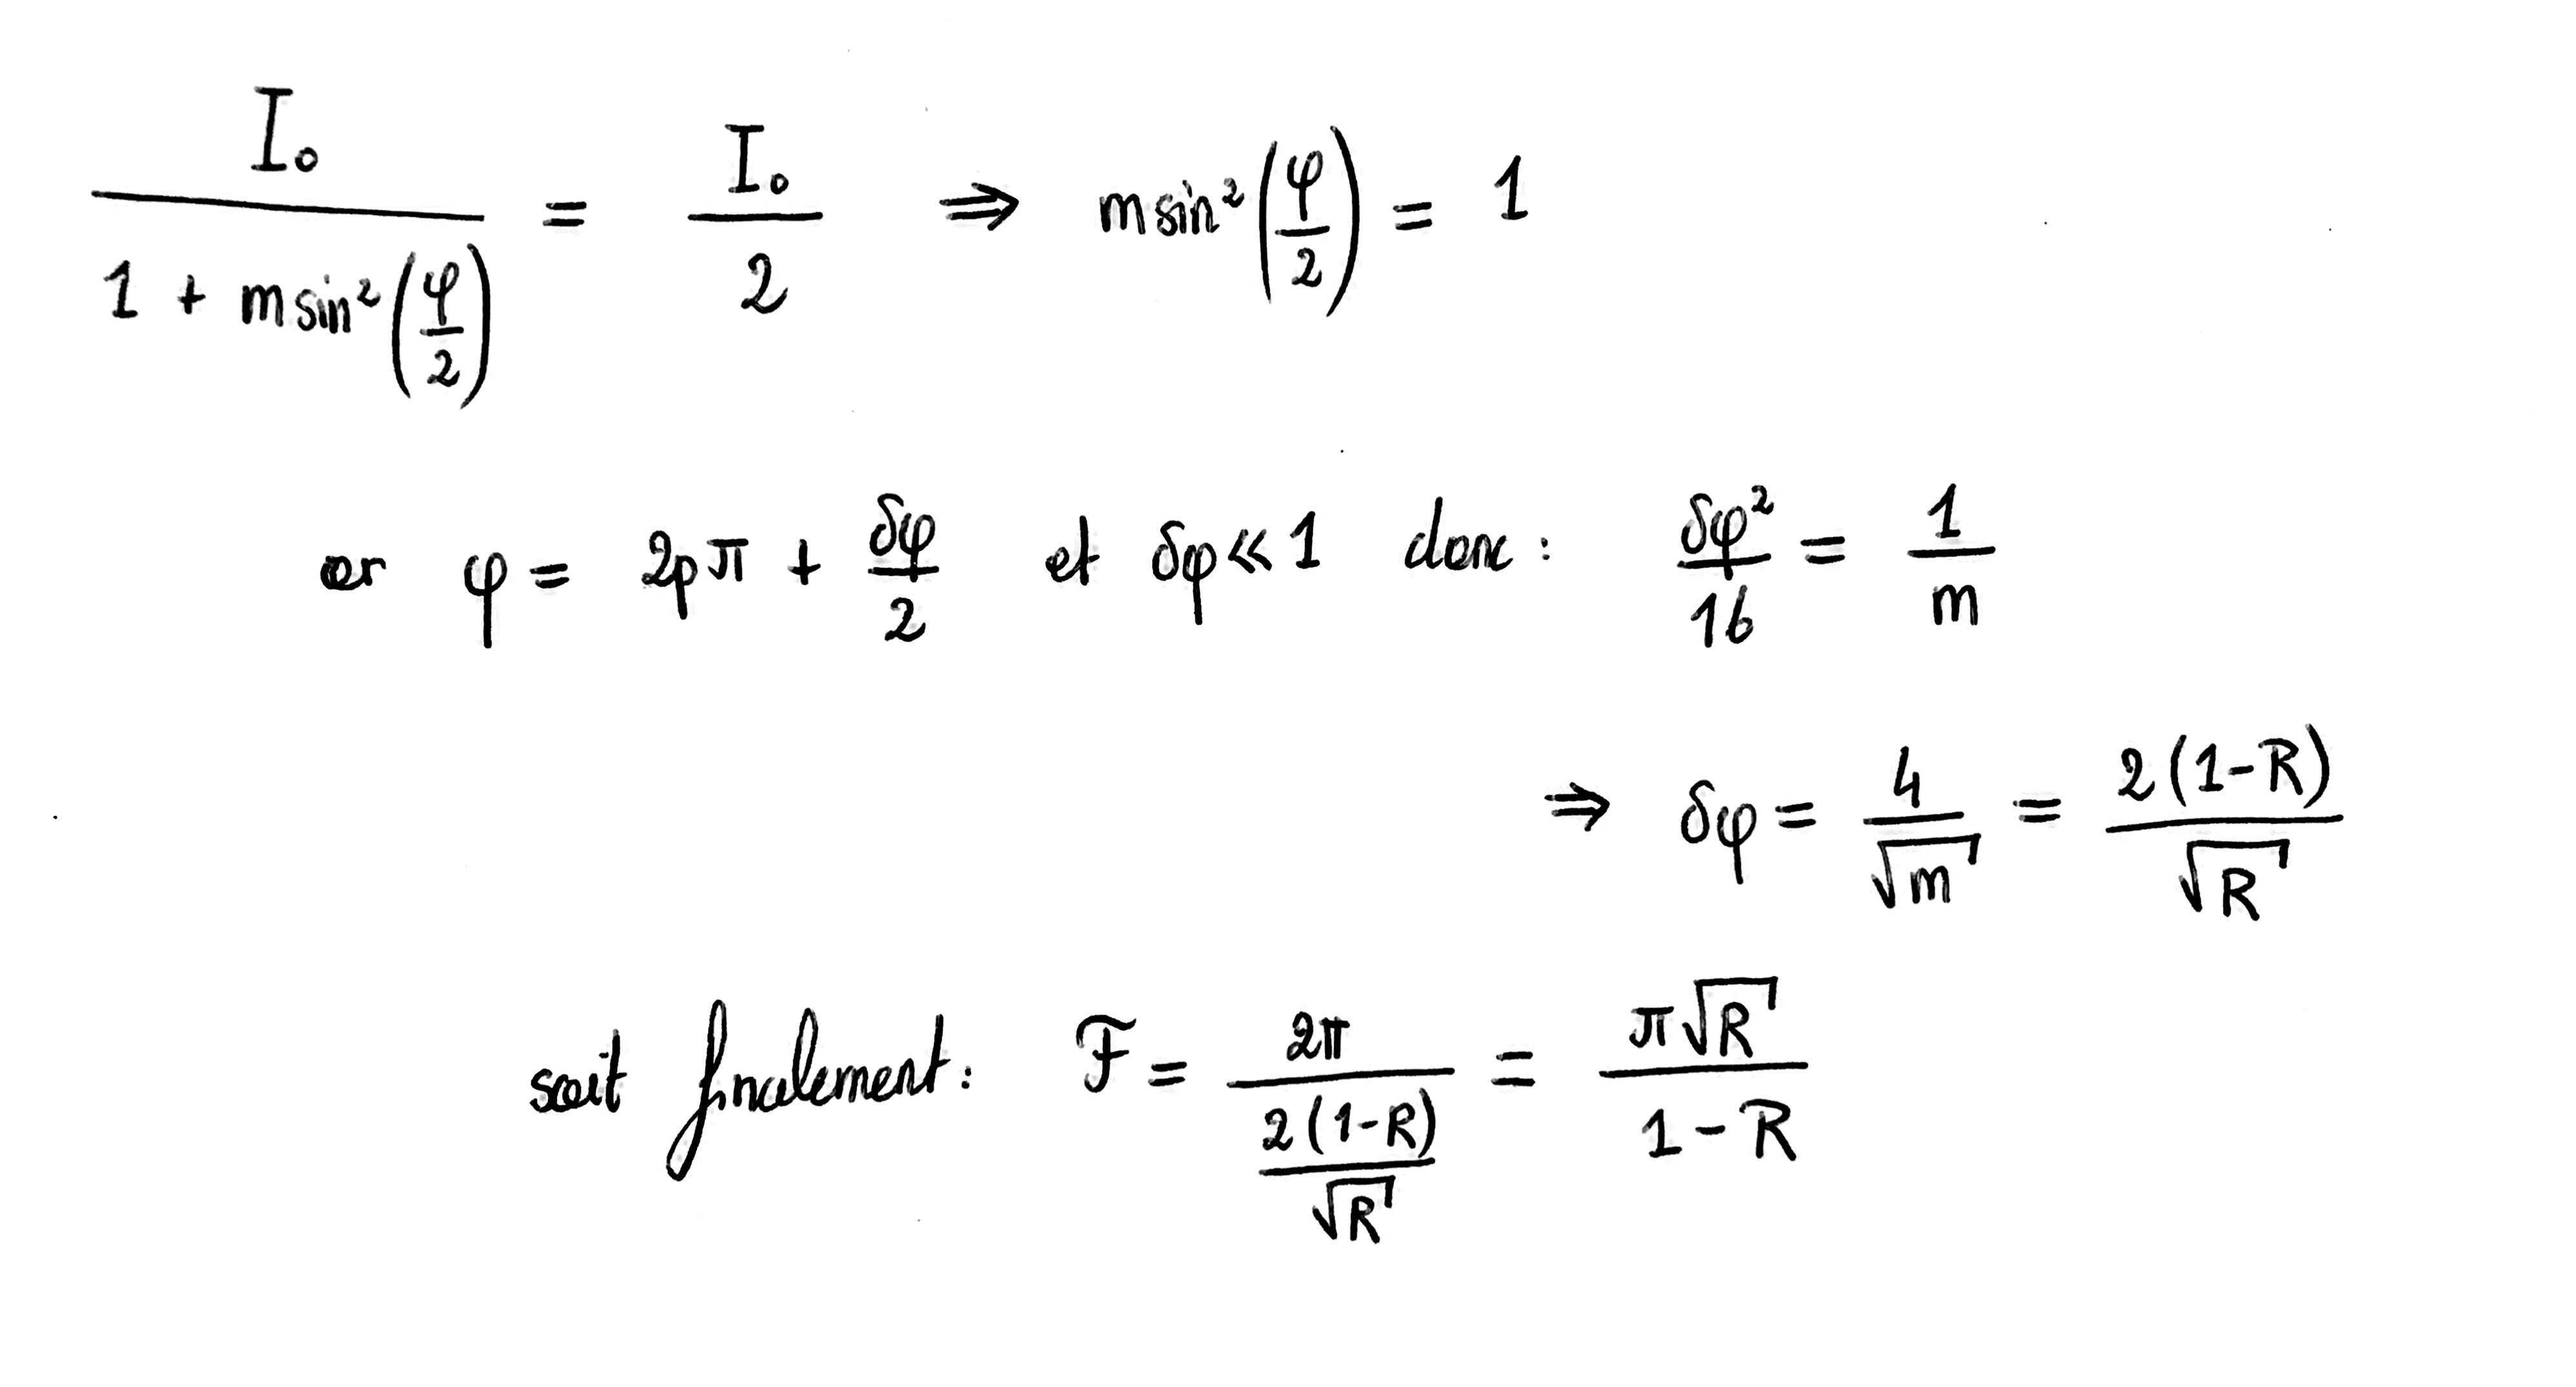 I₀ / (1 + m sin²(φ/2)) = I₀/2 ⇒ m sin²(φ/2) = 1
or φ = 2pπ + δφ/2 et δφ ≪ 1 donc : δφ²/16 = 1/m
⇒ δφ = 4/√m = 2(1-R)/√R
soit finalement : F = 2π / (2(1-R)/√R) = π√R / (1-R)